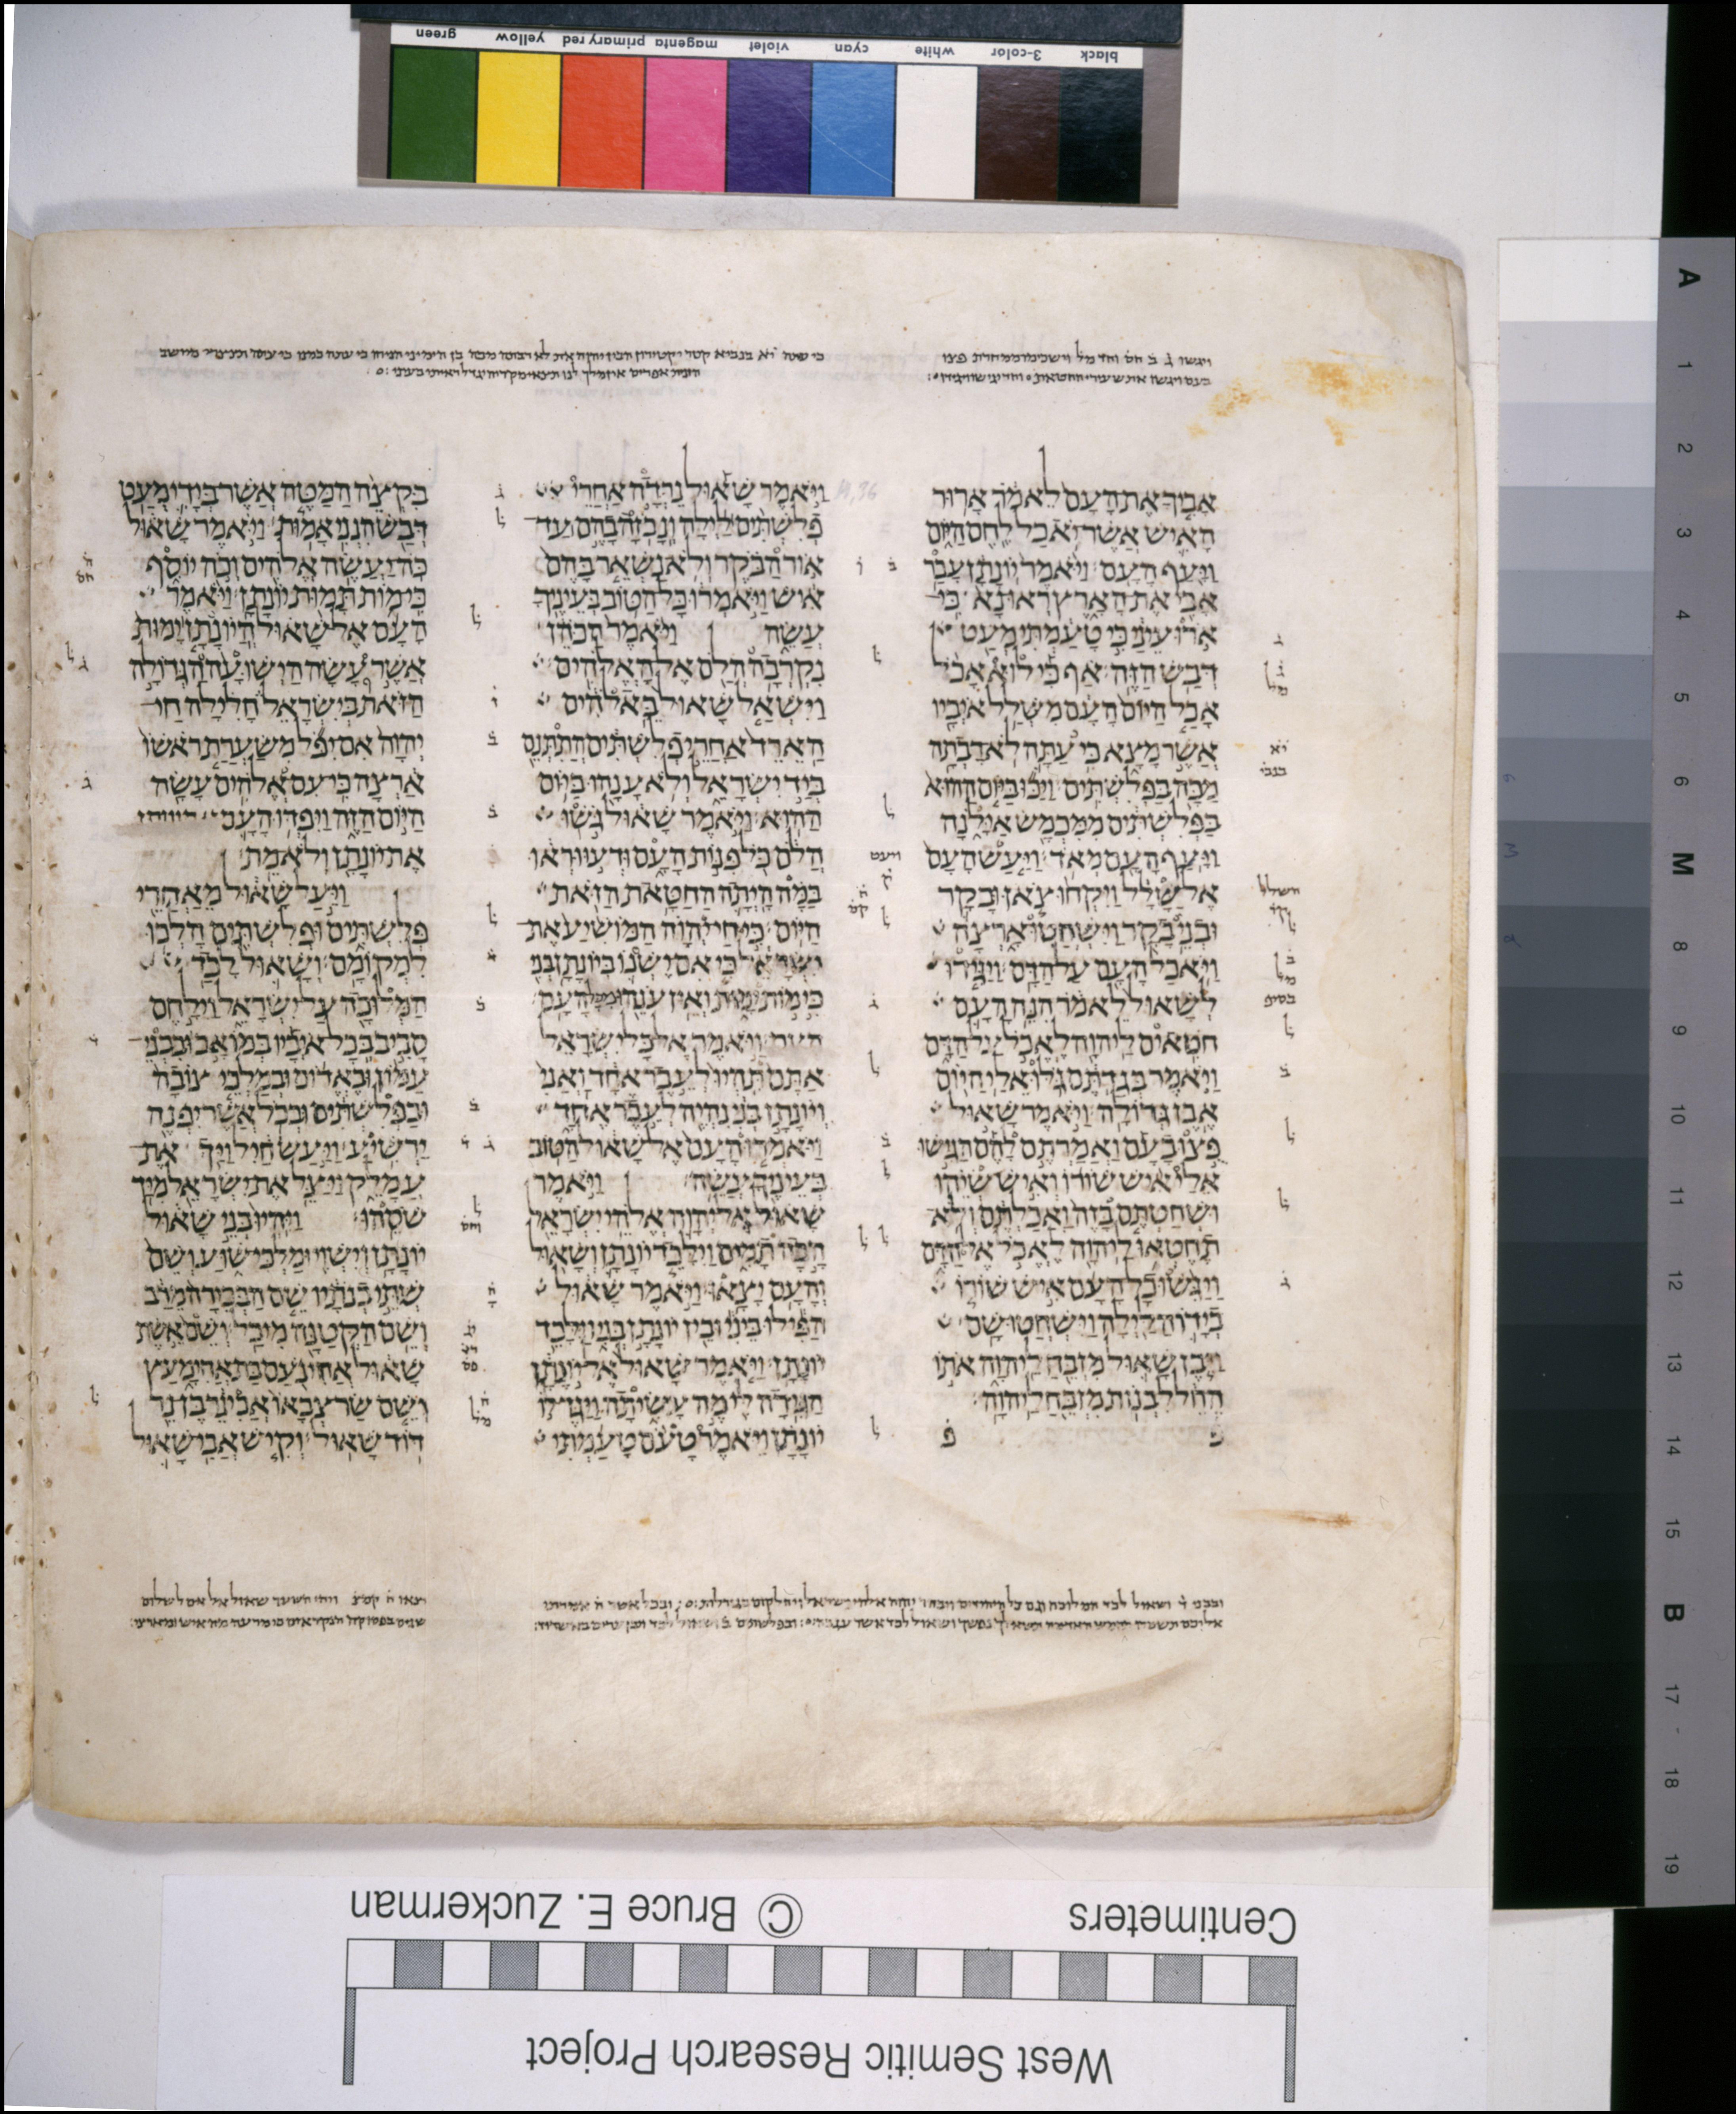 green yellow primary red magenta violet cyan white 3-color black
ויגשו ג ב חס וחד מל וישכימו ממחרת פצו
בעם ויגשו את שעירי החטאת
אביך את העם לאמר ארור
האיש אשר יאכל לחם היום
ויעף העם ויאמר יונתן עכר
אבי את הארץ ראו נא כי
ארו עיני כי טעמתי מעט
דבש הזה אף כי לוא אכל
אכל היום העם משלל איביו
אשר מצא כי עתה לא רבתה
מכה בפלשתים ויכו ביום ההוא
בפלשתים ממכמש אילנה
ויעף העם מאד ויעש העם
אל שלל ויקחו צאן ובקר
ובני בקר וישחטו ארצה
ויאכל העם על הדם ויגידו
לשאול לאמר הנה העם
חטאים ליהוה לאכל על הדם
ויאמר בגדתם גלו אלי היום
אבן גדולה ויאמר שאול
פצו בעם ואמרתם להם הגישו
אלי איש שורו ואיש שיהו
ושחטתם בזה ואכלתם ולא
תחטאו ליהוה לאכל אל הדם
ויגשו כל העם איש שורו
בידו הלילה וישחטו שם
ויבן שאול מזבח ליהוה אתו
החל לבנות מזבח ליהוה
פ פ
ויאמר שאול נרדה אחרי
פלשתים לילה ונבזה בהם עד
אור הבקר ולא נשאר בהם
איש ויאמרו כל הטוב בעיניך
עשה ויאמר הכהן
נקרבה הלם אל האלהים
וישאל שאול באלהים
הארד אחרי פלשתים התתנם
ביד ישראל ולא ענהו ביום
ההוא ויאמר שאול גשו
הלם כל פנות העם ודעו וראו
במה היתה החטאת הזאת
היום כי חי יהוה המושיע את
ישראל כי אם ישנו ביונתן בני
כי מות ימות ואין ענהו מכל העם
ויאמר אל כל ישראל
אתם תהיו לעבר אחד ואני
ויונתן בני נהיה לעבר אחד
ויאמרו העם אל שאול הטוב
בעיניך עשה ויאמר
שאול אל יהוה אלהי ישראל
הבה תמים וילכד יונתן ושאול
והעם יצאו ויאמר שאול
הפילו ביני ובין יונתן בני וילכד
יונתן ויאמר שאול אל יונתן
הגידה לי מה עשיתה ויגד לו
יונתן ויאמר טעם טעמתי
בקצה המטה אשר בידי מעט
דבש הנני אמות ויאמר שאול
כה יעשה אלהים וכה יוסף
כי מות תמות יונתן ויאמר
העם אל שאול היונתן ימות
אשר עשה הישועה הגדולה
הזאת בישראל חלילה חי
יהוה אם יפל משערת ראשו
ארצה כי עם אלהים עשה
היום הזה ויפדו העם
את יונתן ולא מת
ויעל שאול מאחרי
פלשתים ופלשתים הלכו
למקומם ושאול לכד
המלוכה על ישראל וילחם
סביב בכל איביו במואב ובבני
עמון ובאדום ובמלכי צובה
ובפלשתים ובכל אשר יפנה
ירשיע ויעש חיל ויך את
עמלק ויצל את ישראל מיד
שסהו ויהיו בני שאול
יונתן וישוי ומלכישוע ושם
שתי בנתיו שם הבכירה מרב
ושם הקטנה מיכל ושם אשת
שאול אחינעם בת אחימעץ
ושם שר צבאו אבינר בן נר
דוד שאול וקיש אבי שאול
Centimeters © Bruce E. Zuckerman
West Semitic Research Project
A 1 2 3 4 5 6 M 8 9 10 11 12 13 14 15 B 17 18 19